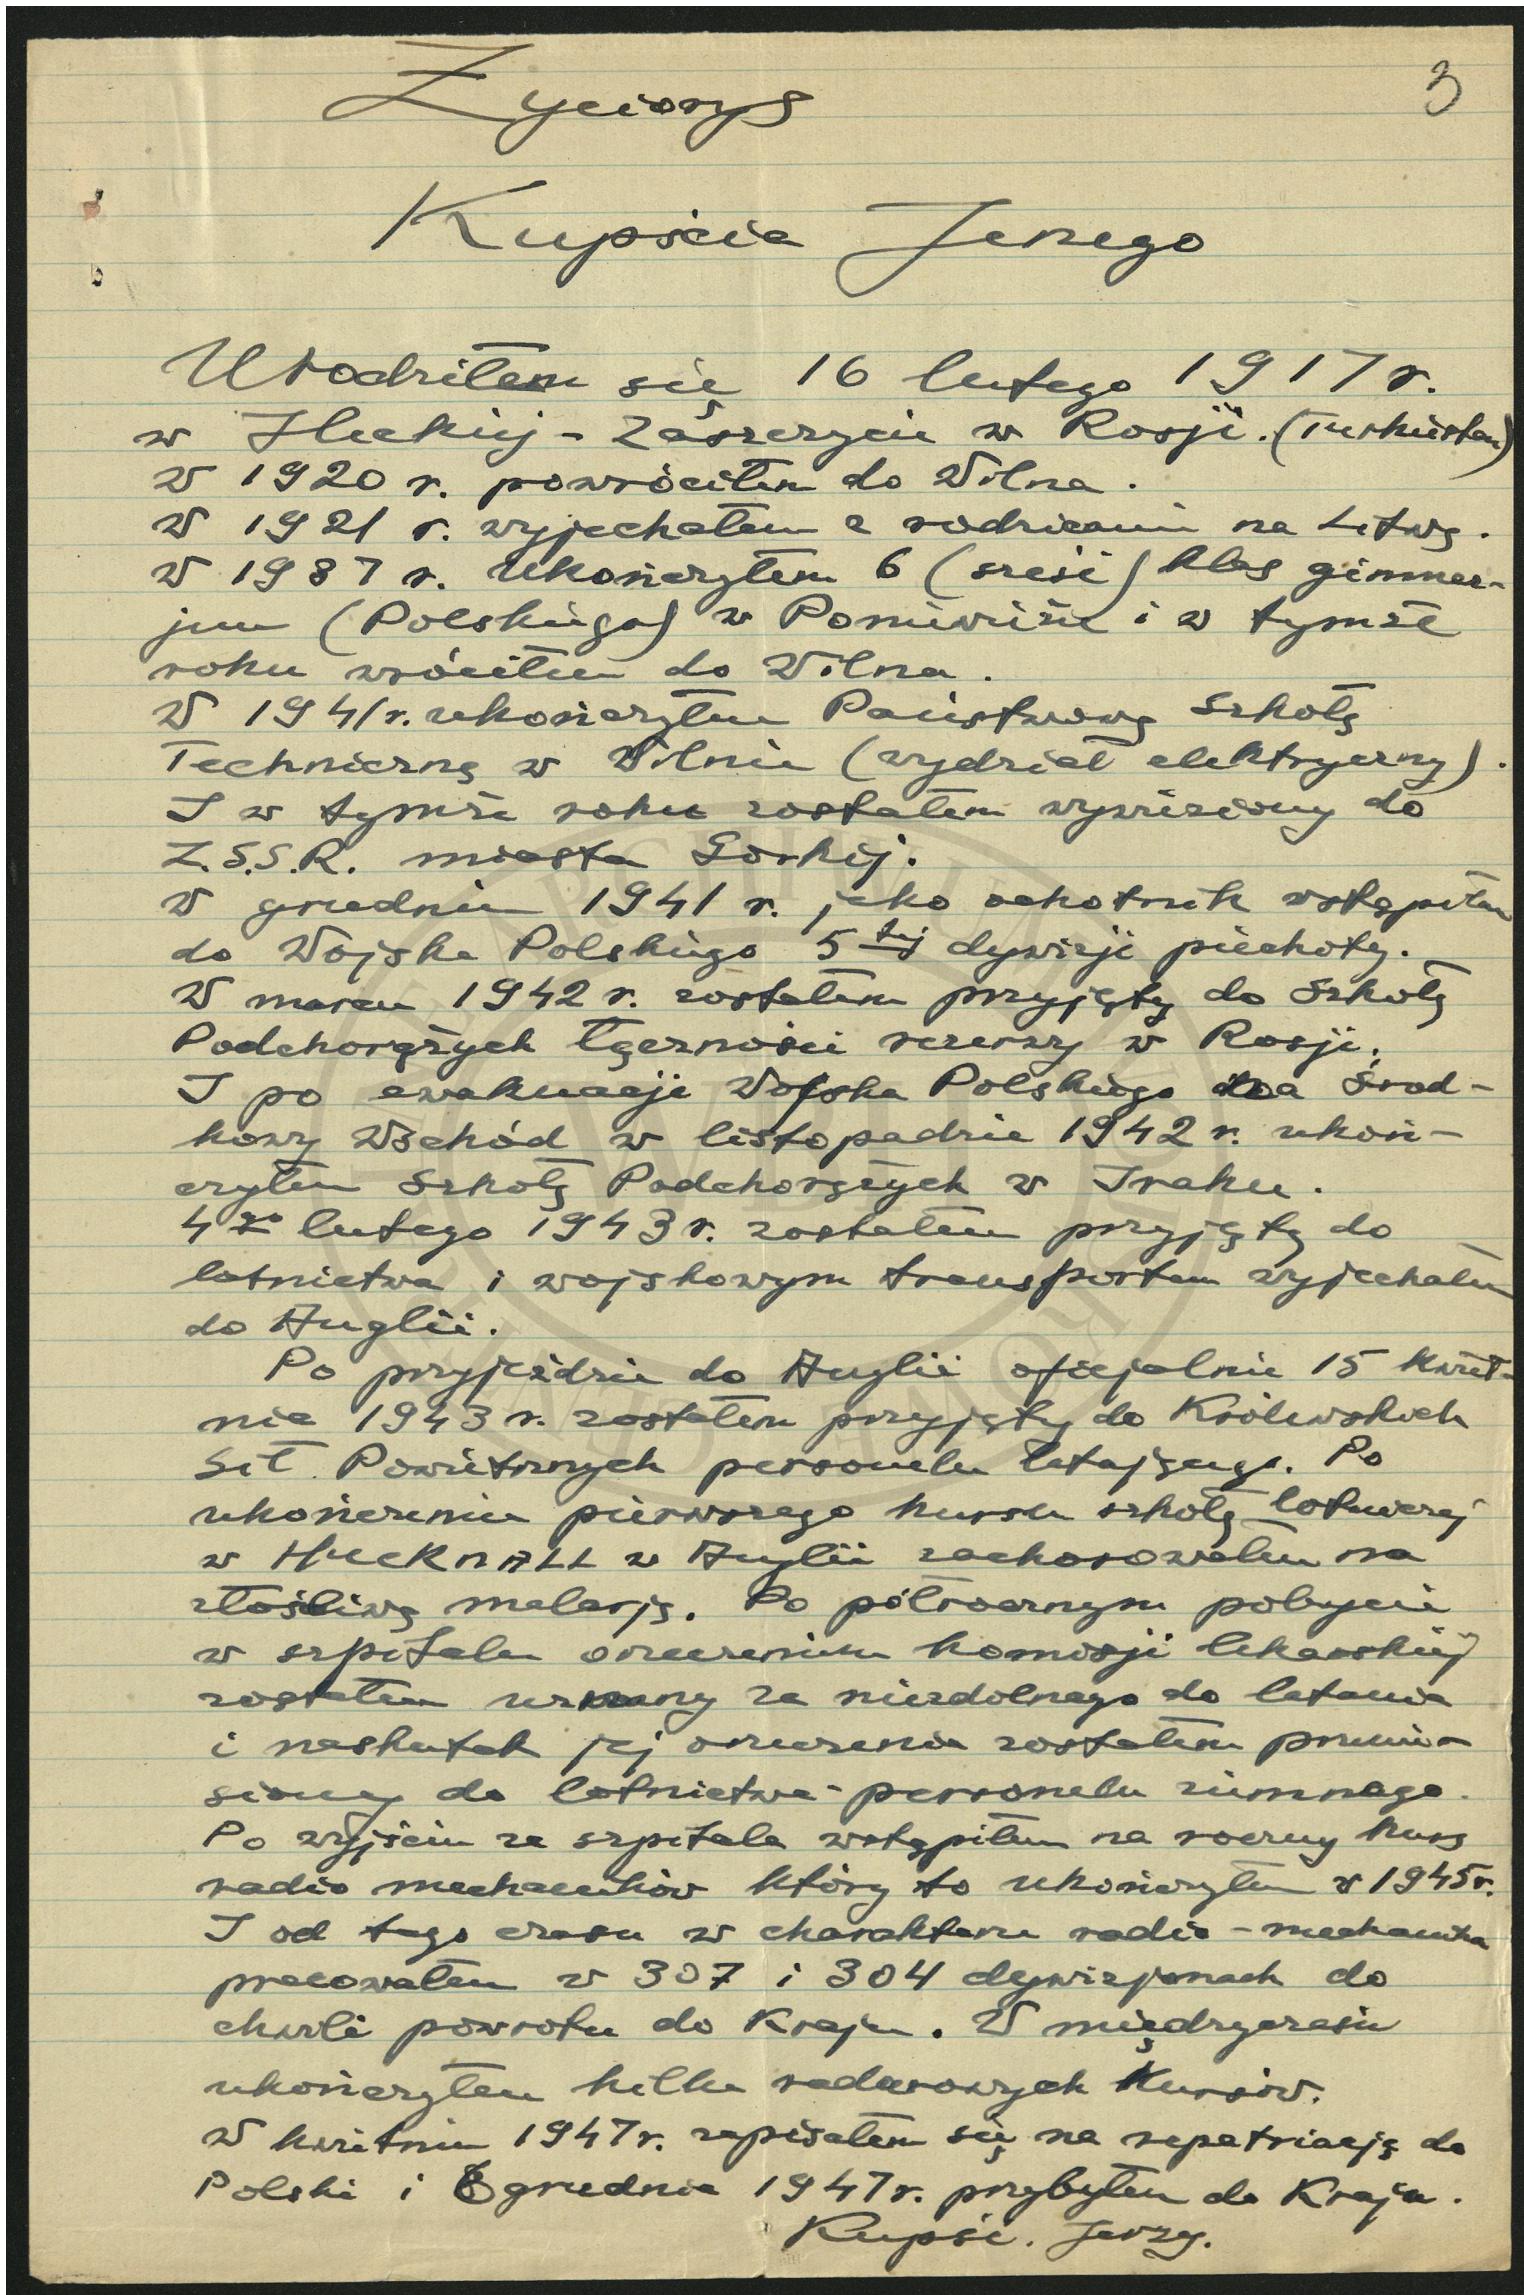 3
Życiorys
Kupścia Jerzego
Urodziłem się 16 lutego 1917 r.
w Ileckiej-Zaszczycie w Rosji. (Turkiestan)
W 1920 r. powróciłem do Wilna.
W 1921 r. wyjechałem z rodzicami na Litwę.
W 1937 r. ukończyłem 6 (sześć) klas gimnaz-
jum (Polskiego) w Poniewieżu i w tymże
roku wróciłem do Wilna.
W 1941 r. ukończyłem Państwową Szkołę
Techniczną w Wilnie (wydział elektryczny).
I w tymże roku zostałem wywieziony do
Z.S.S.R. miasta Gorkij.
W grudniu 1941 r. jako ochotnik wstąpiłem
do Wojska Polskiego 5tej dywizji piechoty.
W marcu 1942 r. zostałem przyjęty do Szkoły
Podchorążych Łączności rezerwy w Rosji.
I po ewakuacji Wojska Polskiego na Środ-
kowy Wschód w listopadzie 1942 r. ukoń-
czyłem Szkołę Podchorążych w Iraku.
4go lutego 1943 r. zostałem przyjęty do
lotnictwa i wojskowym transportem wyjechałem
do Anglii.
Po przyjeździe do Anglii oficjalnie 15 kwiet-
nia 1943 r. zostałem przyjęty do Królewskich
Sił Powietrznych personelu latającego. Po
ukończeniu pierwszego kursu szkoły lotniczej
w HUCKNALL w Anglii zachorowałem na
złośliwą malarję. Po półrocznym pobycie
w szpitalu orzeczeniem komisji lekarskiej
zostałem uznany za niezdolnego do latania
i naskutek jej orzeczenia zostałem przenie-
siony do lotnictwa - personelu ziemnego.
Po wyjściu ze szpitala wstąpiłem na roczny kurs
radio mechaników który to ukończyłem w 1945 r.
I od tego czasu w charakterze radio-mechanika
pracowałem w 307 i 304 dywizjonach do
chwili powrotu do Kraju. W międzyczasie
ukończyłem kilka radarowych Kursów.
W kwietniu 1947 r. zapisałem się na repatriację do
Polski i 8 grudnia 1947 r. przybyłem do Kraju.
Kupść. Jerzy.